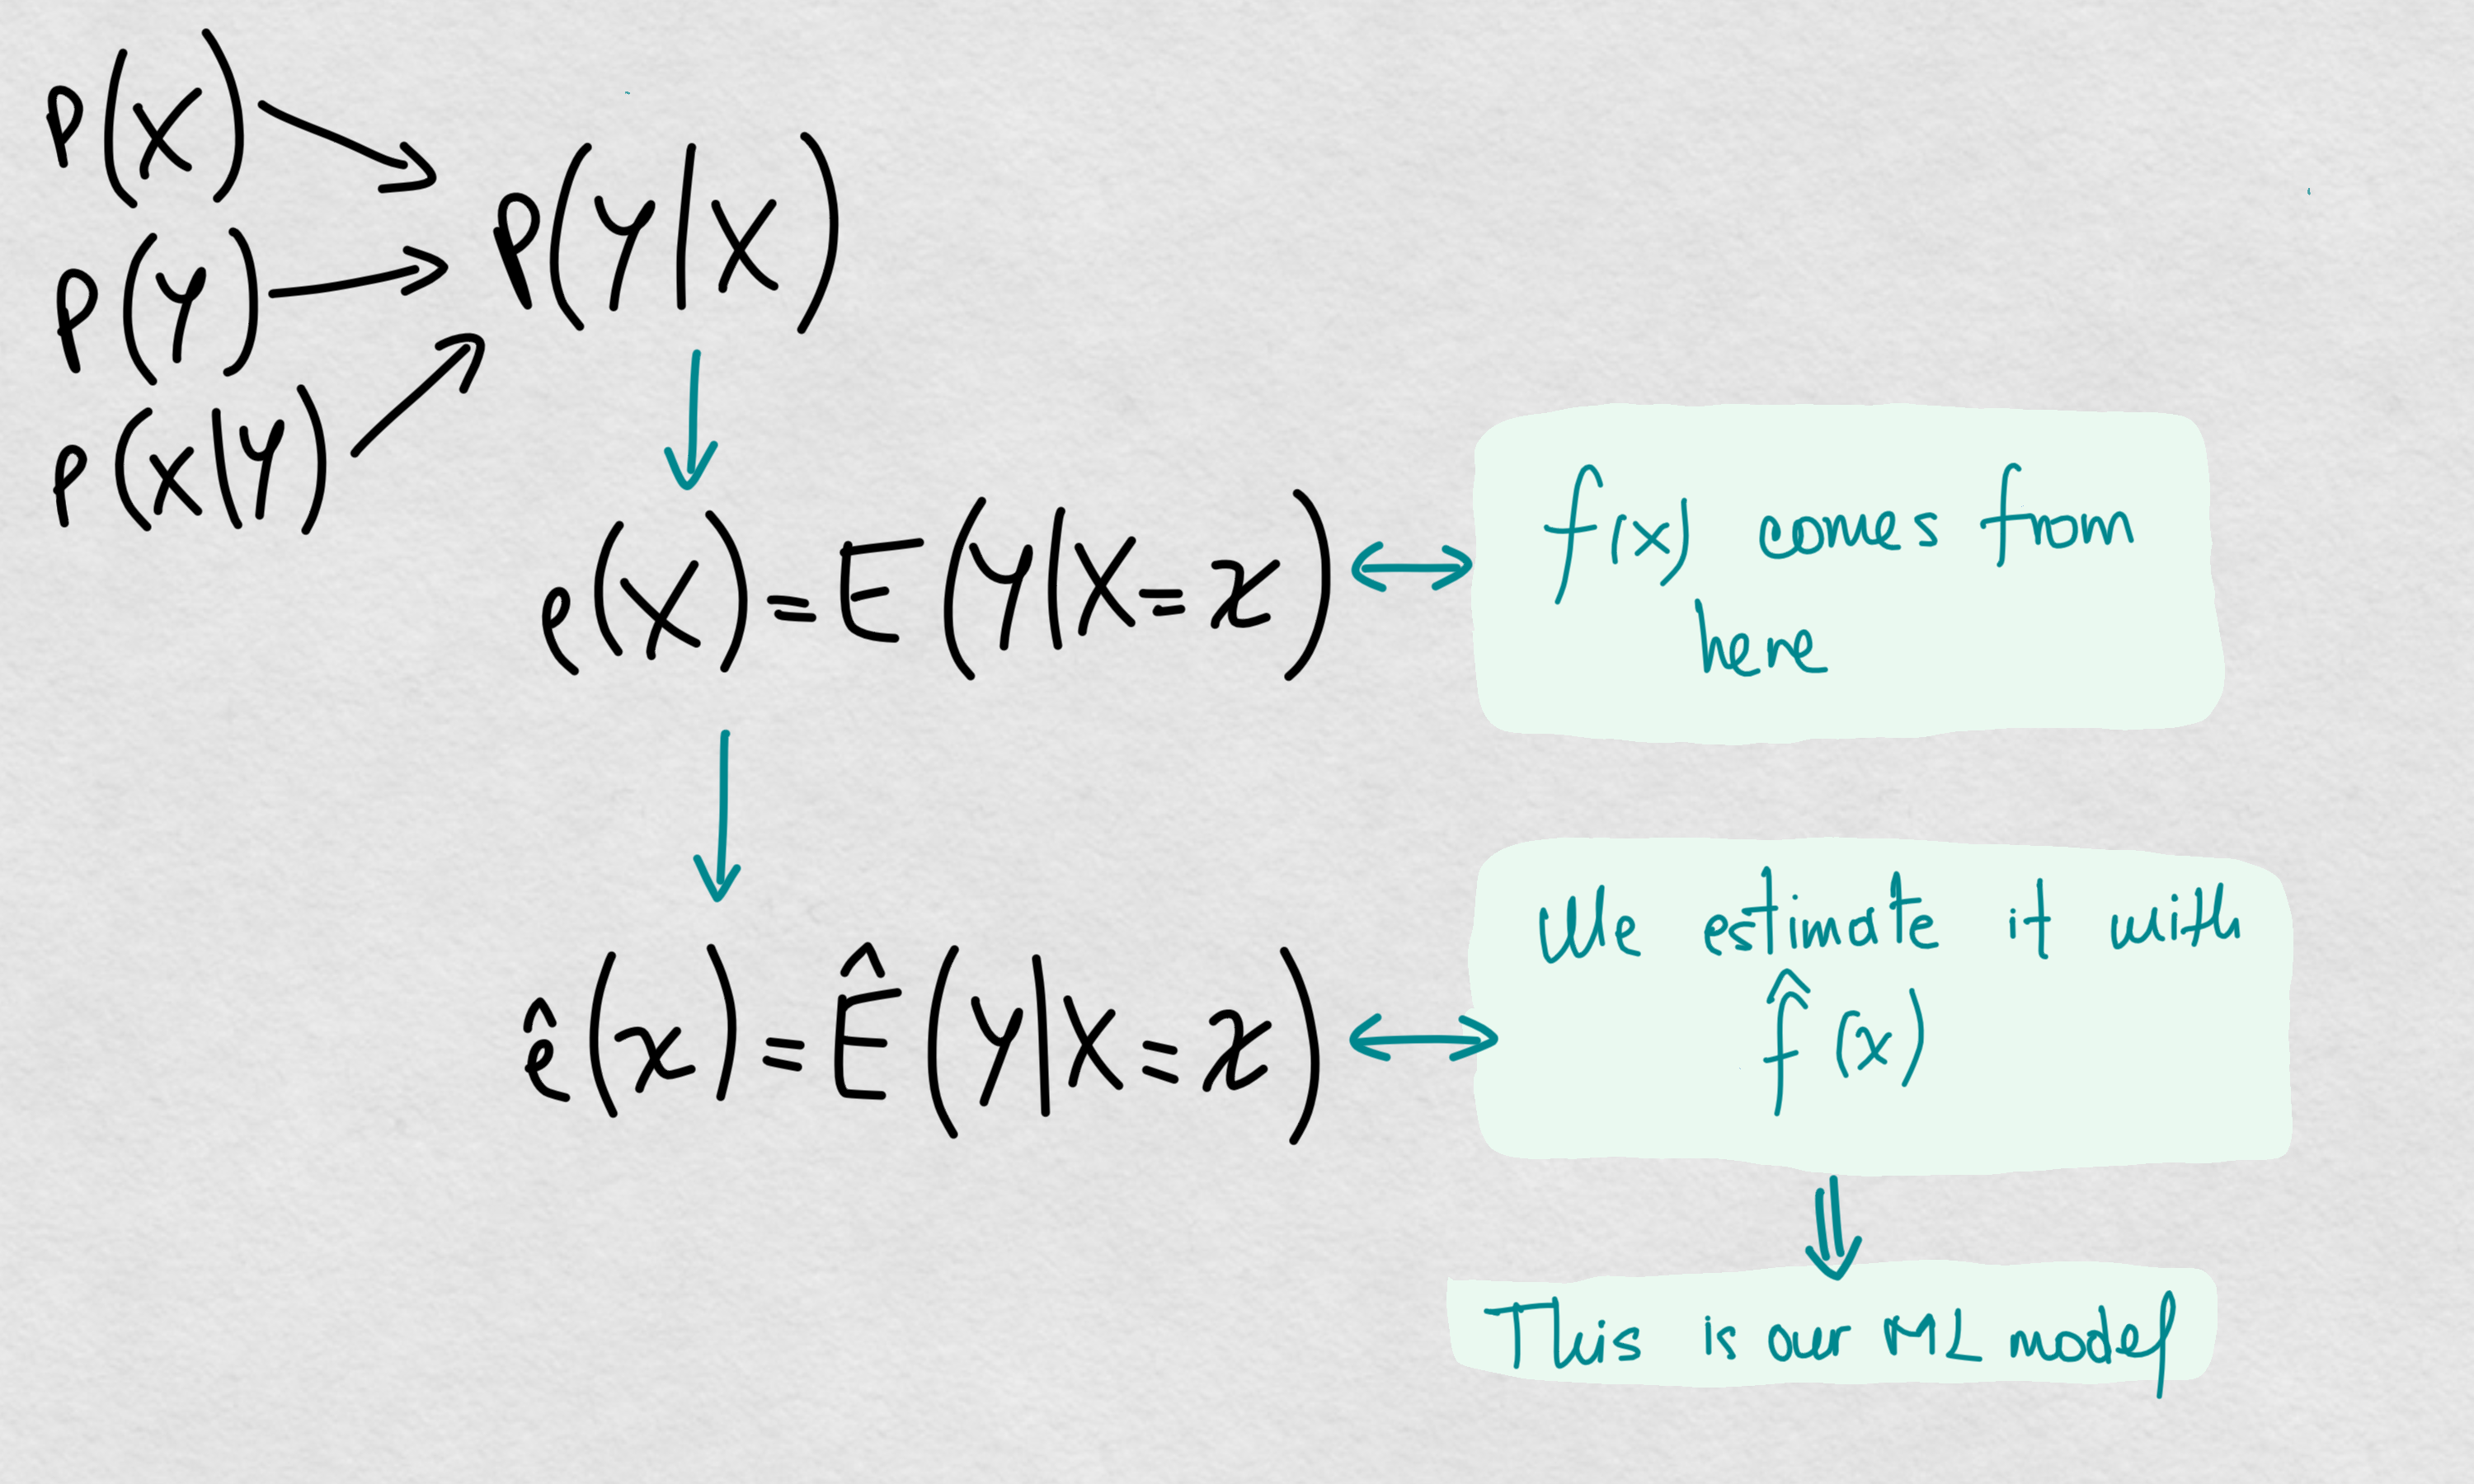 P(X)
P(Y)
P(X|Y)
P(Y|X)
e(X) = E(Y|X=x)
f(x) comes from
here
ê(x) = Ê(Y|X=x)
We estimate it with
f̂(x)
This is our ML model